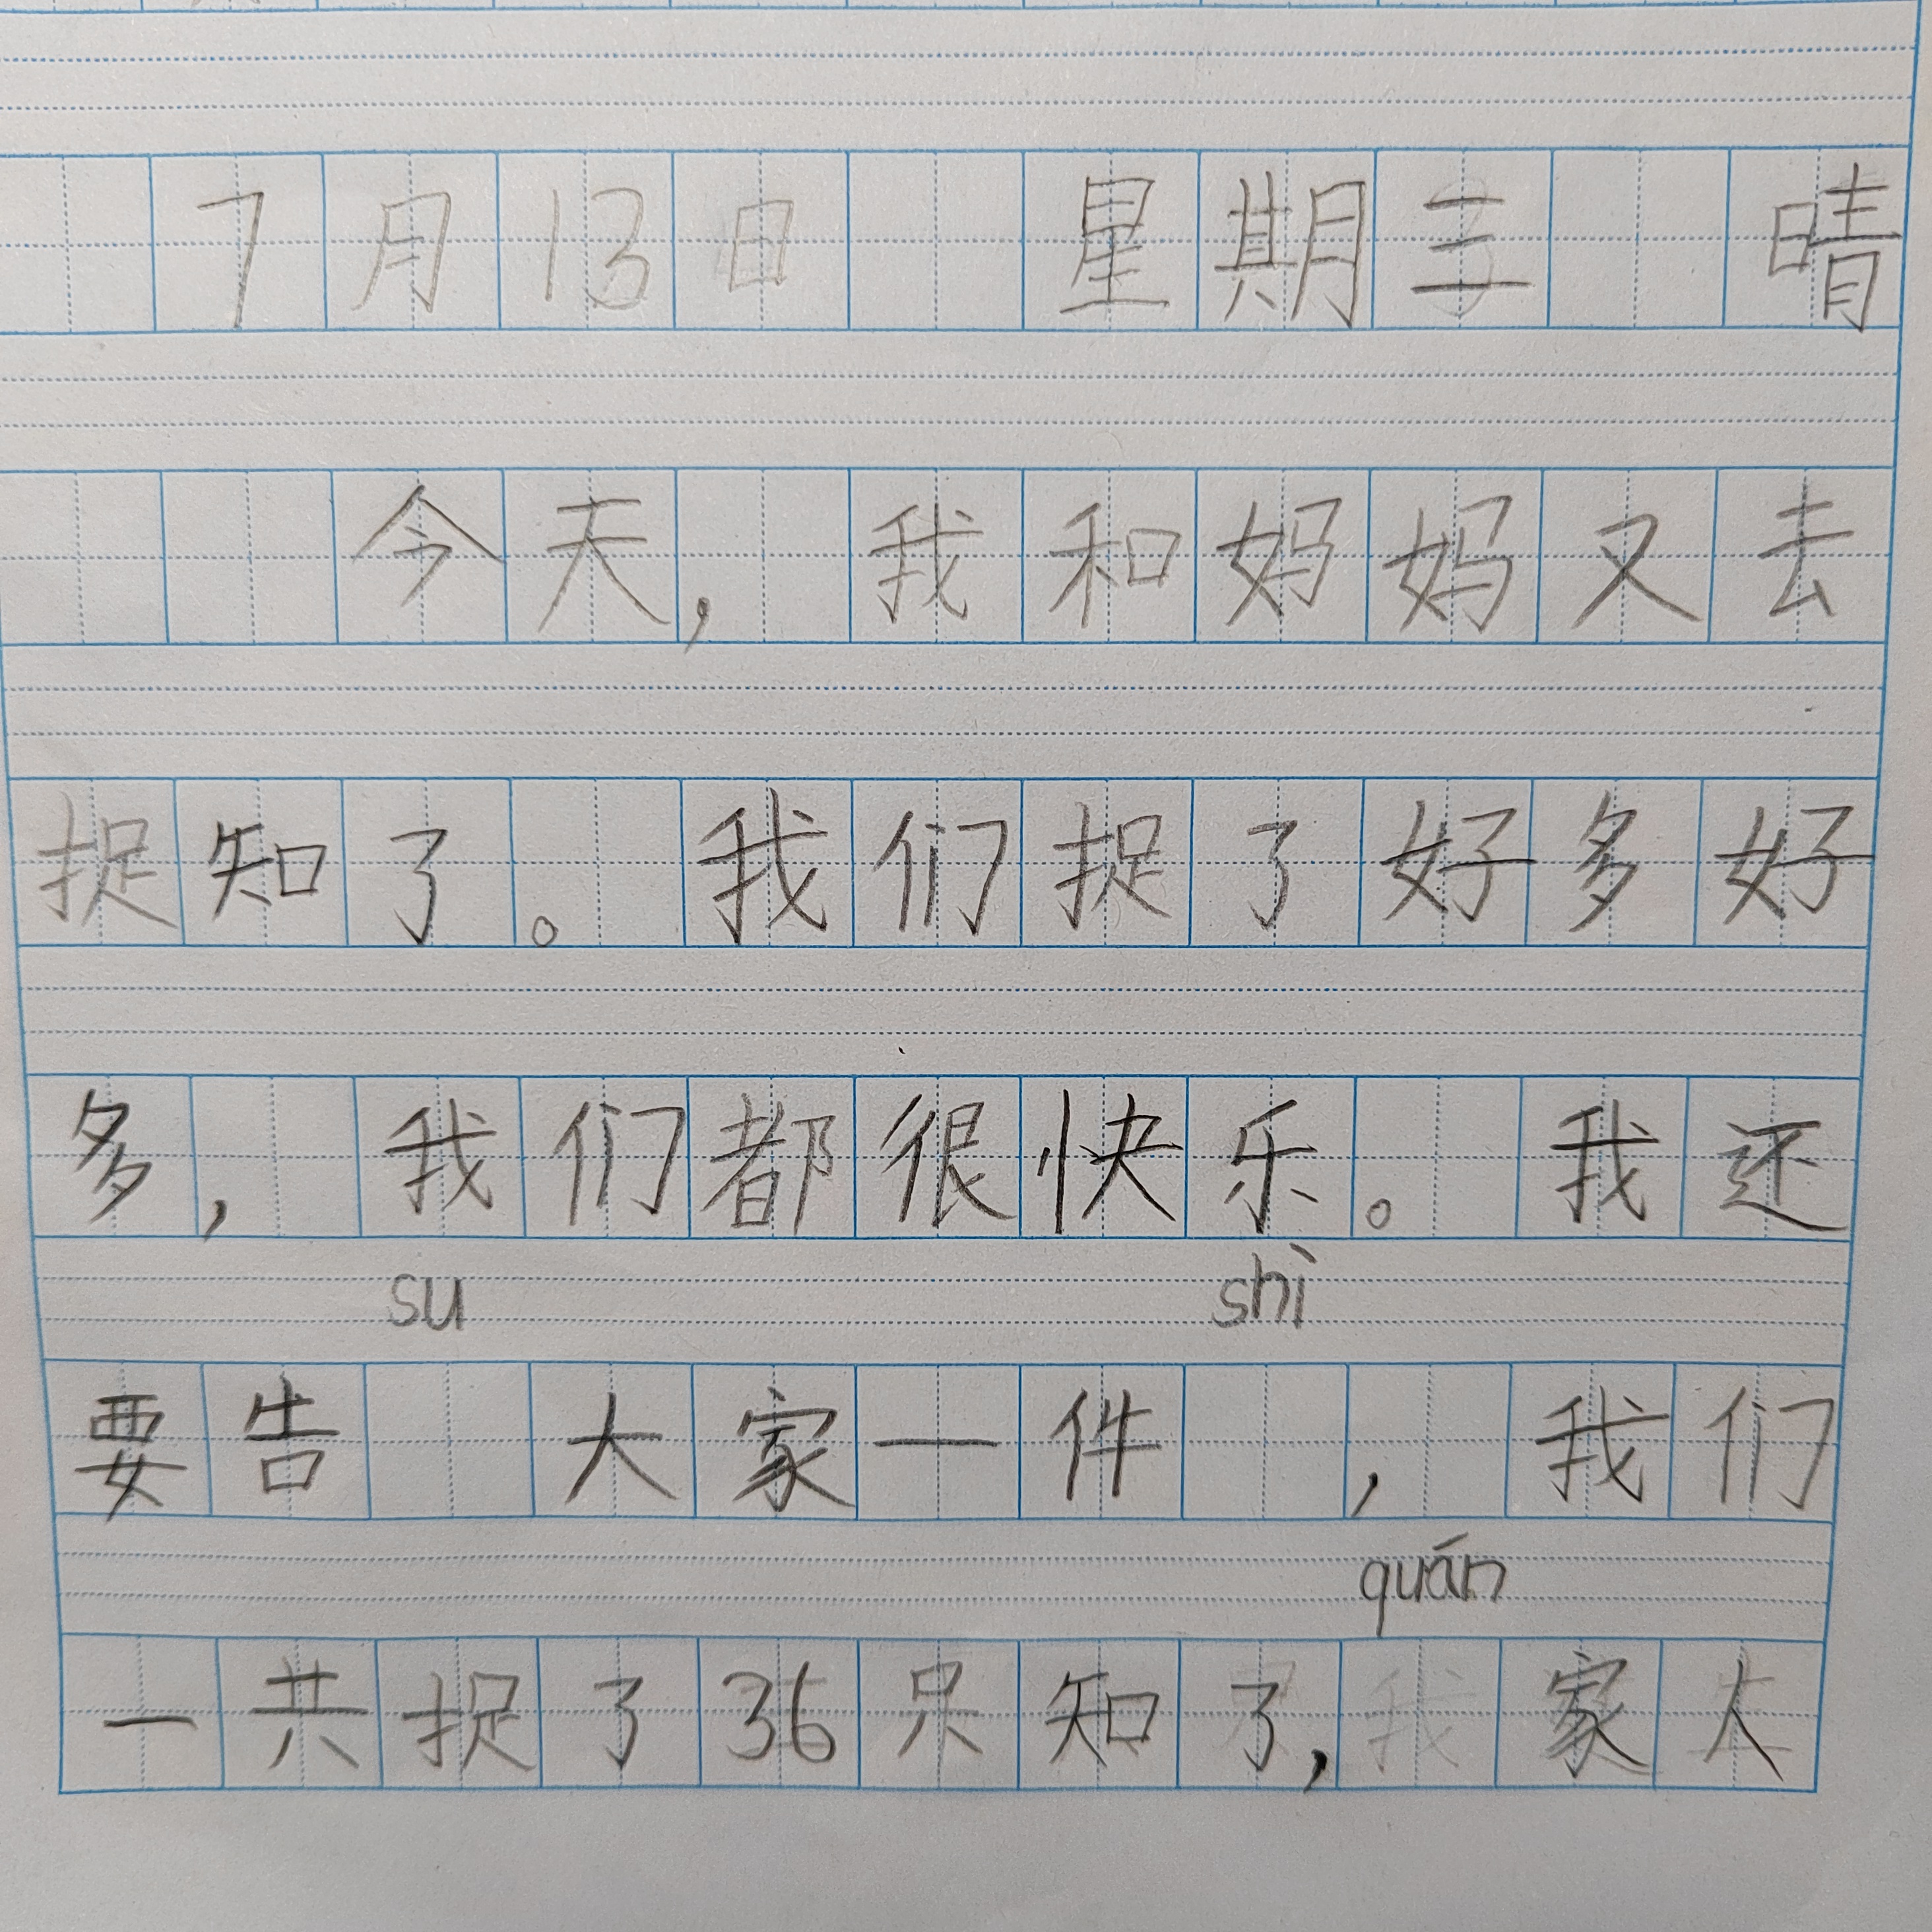 7月13日 星期三 晴
今天，我和妈妈又去
捉知了。我们捉了好多好
多，我们都很快乐。我还
su shì
要告 大家一件 ，我们
quán
一共捉了36只知了， 家人